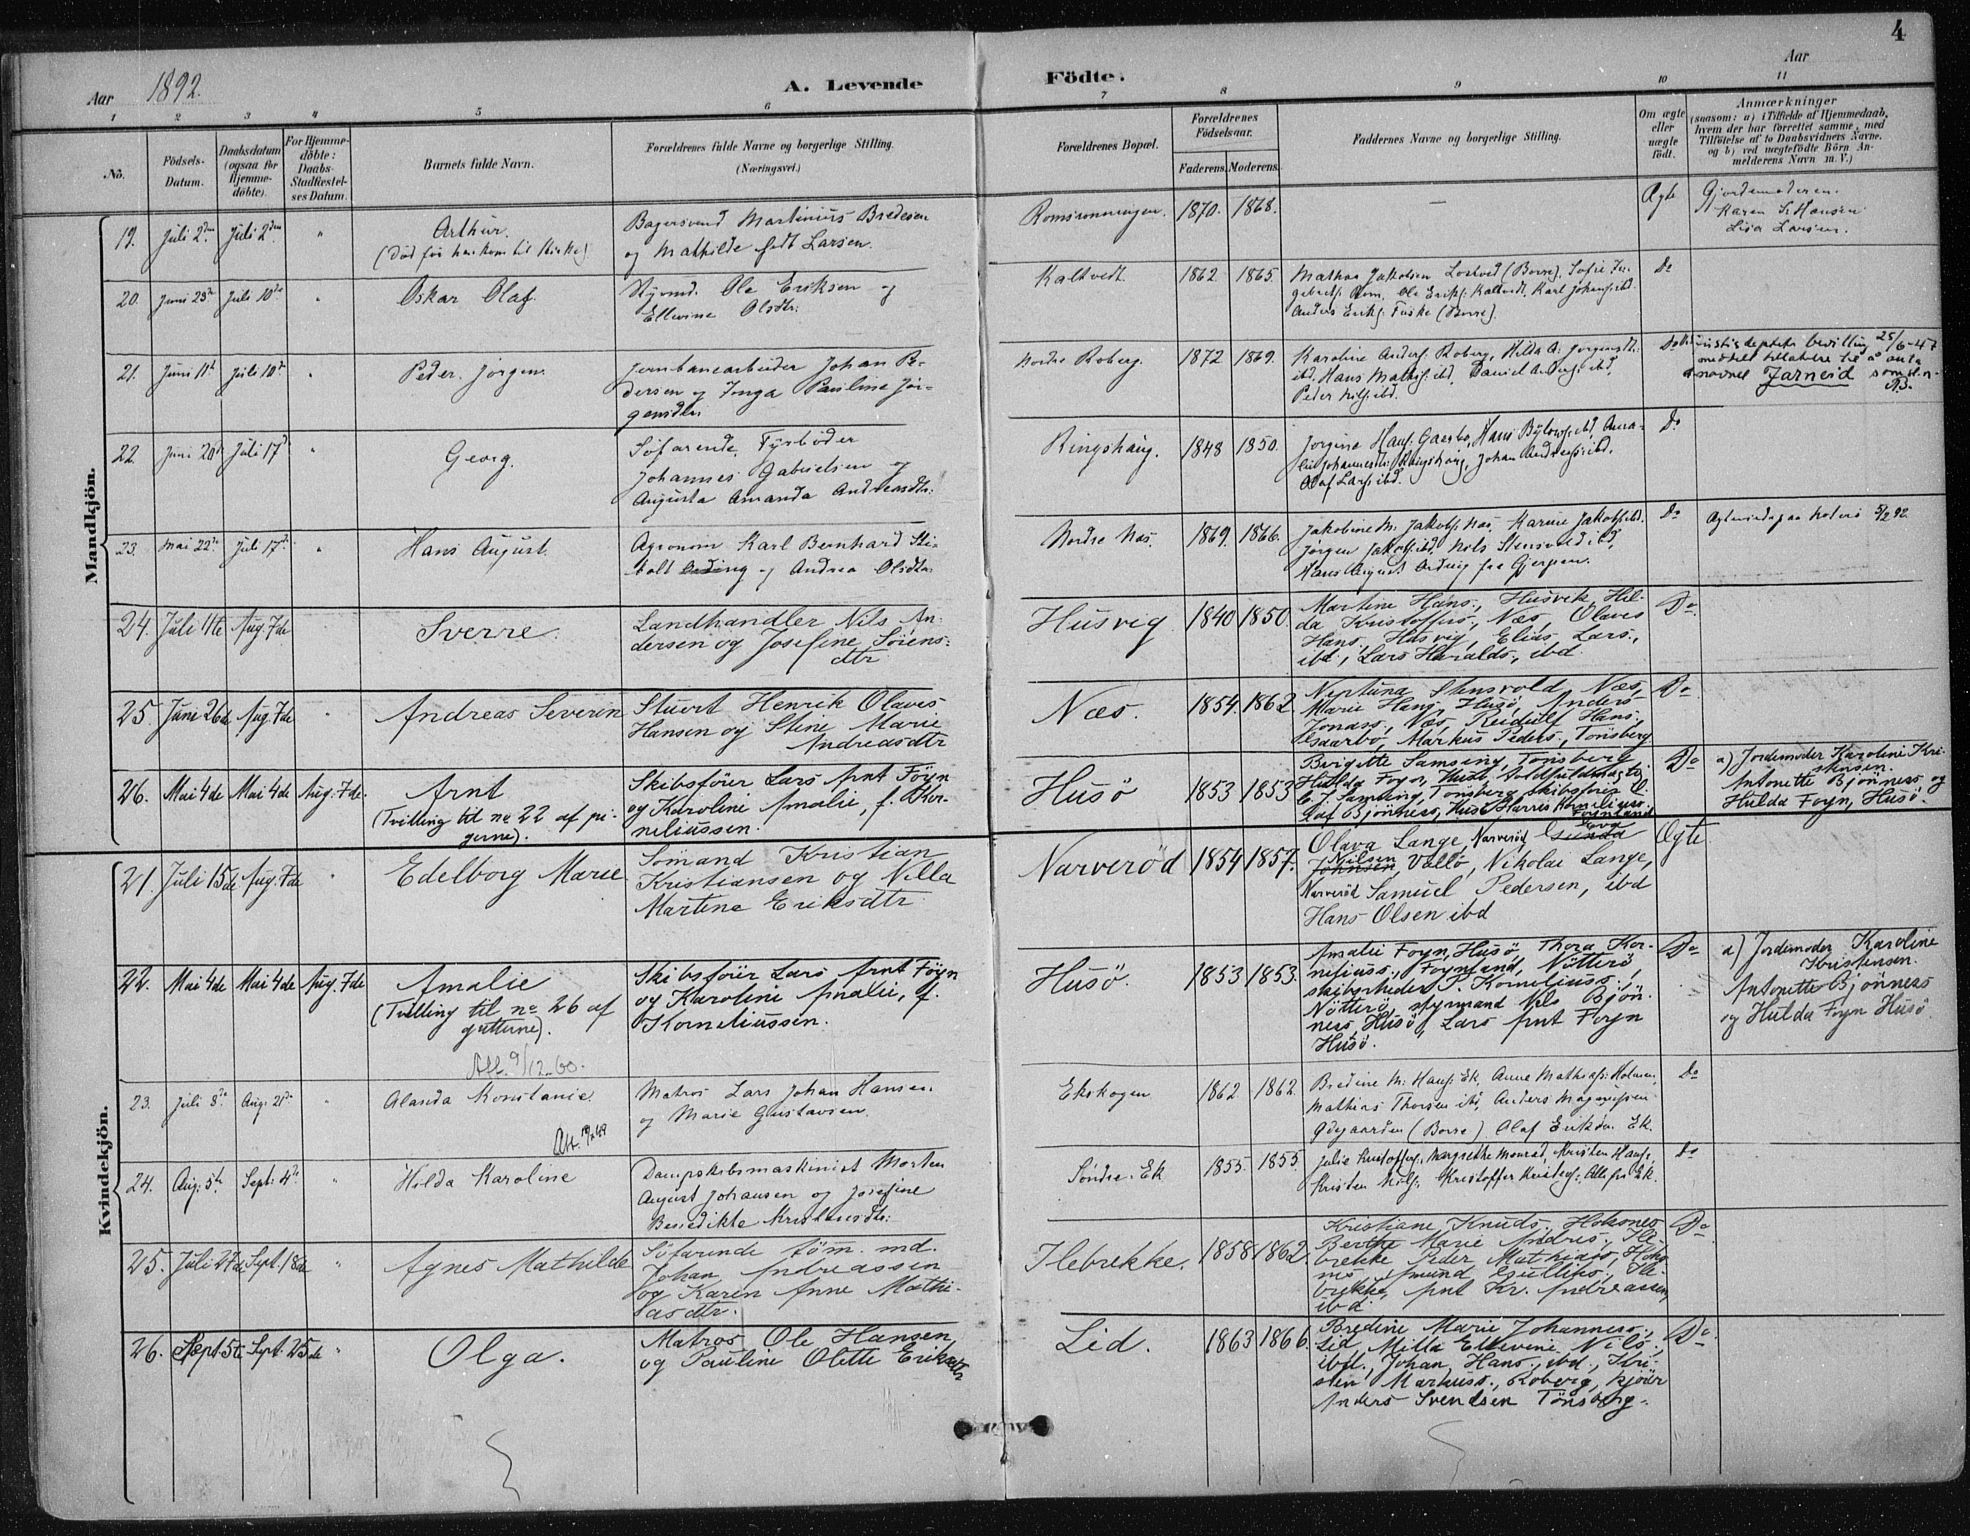 4
Aar 1892.
A. Levende Födte.
Aar
1 2 3 4 5 6 7 8 9 10 11
No.
Födsels-
Datum.
Daabsdatum
(ogsaa for
Hjemme-
döbte).
For Hjemme-
döbte:
Daabs-
Stadfæstel-
ses Datum.
Barnets fulde Navn.
Forældrenes fulde Navne og borgerlige Stilling.
(Næringsvei.)
Forældrenes Bopæl.
Forældrenes
Födselsaar.
Faderens. Moderens.
Faddernes Navne og borgerlige Stilling.
Om ægte
eller
uægte
födt.
Anmærkninger
(saasom: a) i Tilfælde af Hjemmedaab,
hvem der har forrettet samme, med
Tilföielse af to Daabsvidners Navne.
og b) ved uægtefödte Börn An-
melderens Navn m. V.)
Mandkjön.
19. Juli 2den Juli 2den "
Arthur.
(Död før han kom til Kirke)
Bagersvend Martinius Bredesen
og Mathilde født Larsen.
Romsronningen. 1870. 1868. —
Ægte
Gjordemoderen
Karen S. Hansen
Lisa Larsen.
20. Juni 23de Juli 10de "
Oskar Olaf.
Styrmd. Ole Eriksen og
Ellevine Olsdtr.
Kaltvedt. 1862. 1865.
Mathea Jakobsen (Borre), Sofie
Ole Eriks. Kaltvedt, Karl Johans. ibd.
Anders Eriks. Fuske (Borre).
Do
21. Juni 11te Juli 10de "
Peder Jörgen.
Jernbanearbeider Johan Pe-
dersen og Inga Pauline Jör-
gensdtr.
Nordre Roberg. 1872 1869.
Karoline Anders. Roberg, Hilda A. Jörgensdtr.
ibd. Hans Mathis. ibd. Daniel Anders. ibd.
Peder Nils. ibd.
Do
Justisdeptets bevilling 25/6-47
meddelt tillatelse til å anta
navnet Jarneid som sl.n.
22. Juni 20de Juli 17de "
Georg.
Söfarende, Fyrböder
Johannes Gabrielsen og
Augusta Amanda Andreasdtr.
Ringshaug. 1848 1850.
Jörgine Hans. Gaarbo, Hans ibd, Ama-
lie Johannesdtr. Ringshaug, Johan Andreas. ibd.
Olaf Lars. ibd.
Do
23. Mai 22de Juli 17de "
Hans August.
Agronom Karl Bernhard Sti-
bolt Ording og Andrea Olsdtr.
Nordre Næs. 1869. 1866.
Jakobine M. Jakobs. Næs, Karine Jakobs. ibd.
Jörgen Jakobs. ibd. Nils Stensvold ibd,
Hans August Ording fra Gjerpen.
Do
Ægteviede paa Nöterö 5/2 92.
24. Juli 4de Aug. 7de
Sverre.
Landhandler Nils An-
dersen og Josefine Sörens-
dtr
Husvig 1840 1850
Martine Hans., Husvik, Hil-
da Kristoffers., Næs, Olaves
Hans., Husvig, Elias Lars.,
ibd., Lars Haralds., ibd.
Do
25. Juni 26de Aug. 7de "
Andreas Severin
Stuert Henrik Olaves
Hansen og Stine Marie
Andreasdtr
Næs. 1854. 1862.
Neptuna Stensvold, Næs,
Marie Hans., Husö, Anders
Jonass., Næs, Reidulf Hans.,
Gaarbo, Markus Peders., Tönsberg
Do.
26. Mai 4de Mai 4de Aug. 7de
Arnt
(Tvilling til no 22 af pi-
gerne).
Skibsförer Lars Arnt Föyn
og Karoline Amalie, f. Kor-
neliussen.
Husö 1853 1853
Brigitte Samsing, Tönsberg
Hulda Foyn, Husö, Toldfuldmægtig
C. J. Samsing, Tönsberg, skibsförer O-
laf Bjönness, Husö, Harris Kornelius.,
Foynland
Do
a) Jordemoder Karoline Kri-
stensen.
Antonette Bjönness og
Hulda Foyn, Husö.
Kvindekjön.
21. Juli 15de Aug. 7de "
Edelborg Marie
Sömand Kristian
Kristiansen og Nilla
Martine Eriksdtr.
Narveröd 1854 1857.
Olava Lange, Narveröd, Gunda Eva
Johnsen Nilsen, Vallö, Nikolai Lange,
Narveröd Samuel Pedersen, ibd
Hans Olsen ibd
Ægte
22. Mai 4de Mai 4de Aug. 7de
Amalie
(Tvilling til no 26 af
gutterne).
Skibsförer Lars Arnt Föyn
og Karoline Amalie, f.
Korneliussen.
Husö. 1853 1853.
Amalie Foyn, Husö, Thora Kor-
neliuss., Foynland, Nötterö,
skibsrheder P. Korneliuss.,
Nötterö, styrmand Nils Bjön-
ness, Husö, Lars Arnt Foyn
Husö.
Do
a) Jordemoder Karoline
Kristensen.
Antonette Bjönness
og Hulda Foyn Husö.
Att. 9/12-60.
23. Juli 8de Aug. 21de "
Alanda Konstanie.
Matros Lars Johan Hansen
og Marie Gustavsen.
Ekskogen 1862 1862.
Bredine M. Hans. Ek, Anne Mathias. Holmen,
Mathias Thorsen ibd, Anders Magnussen
Ødegaarden (Borre) Olaf Eriksen Ek.
Do
Att.
24. Aug. 5te Sept. 4de "
Hilda Karoline
Dampskibsmaskinist Morten
August Johansen og Josefine
Benedikte Kristensdtr.
Söndre Ek 1855. 1855.
Julie Kristoffers., Margrethe Monrad, Kristen Hans.,
Kristen Nils., Kristoffer Kristofs. Alle fra Ek.
do
25. Juli 27de Sept. 18de "
Agnes Mathilde
Söfarende töm. md.
Johan Andreassen
og Karen Anne Mathi-
asdtr.
Ilebrekke. 1858 1862.
Kristiane Knuds., Hoksnes
Berthe Marie Andrs., Ile-
brekke Peder Mathias., Hoks-
nes, Amund Gulliks., Ile-
brekke, Arnt Kr. Andreassen
ibd
Do
26. Sept. 5te Sept. 25de "
Olga.
Matros Ole Hansen
og Pauline Olette Eriksdtr
Lid. 1863 1866.
Bredine Marie Johanness.,
Lid, Milla Ellevine Nils.,
ibd., Johan Hans., ibd., Kri-
sten Markuss., Roberg, kjörer
Anders Svendsen Tönsberg.
Do.